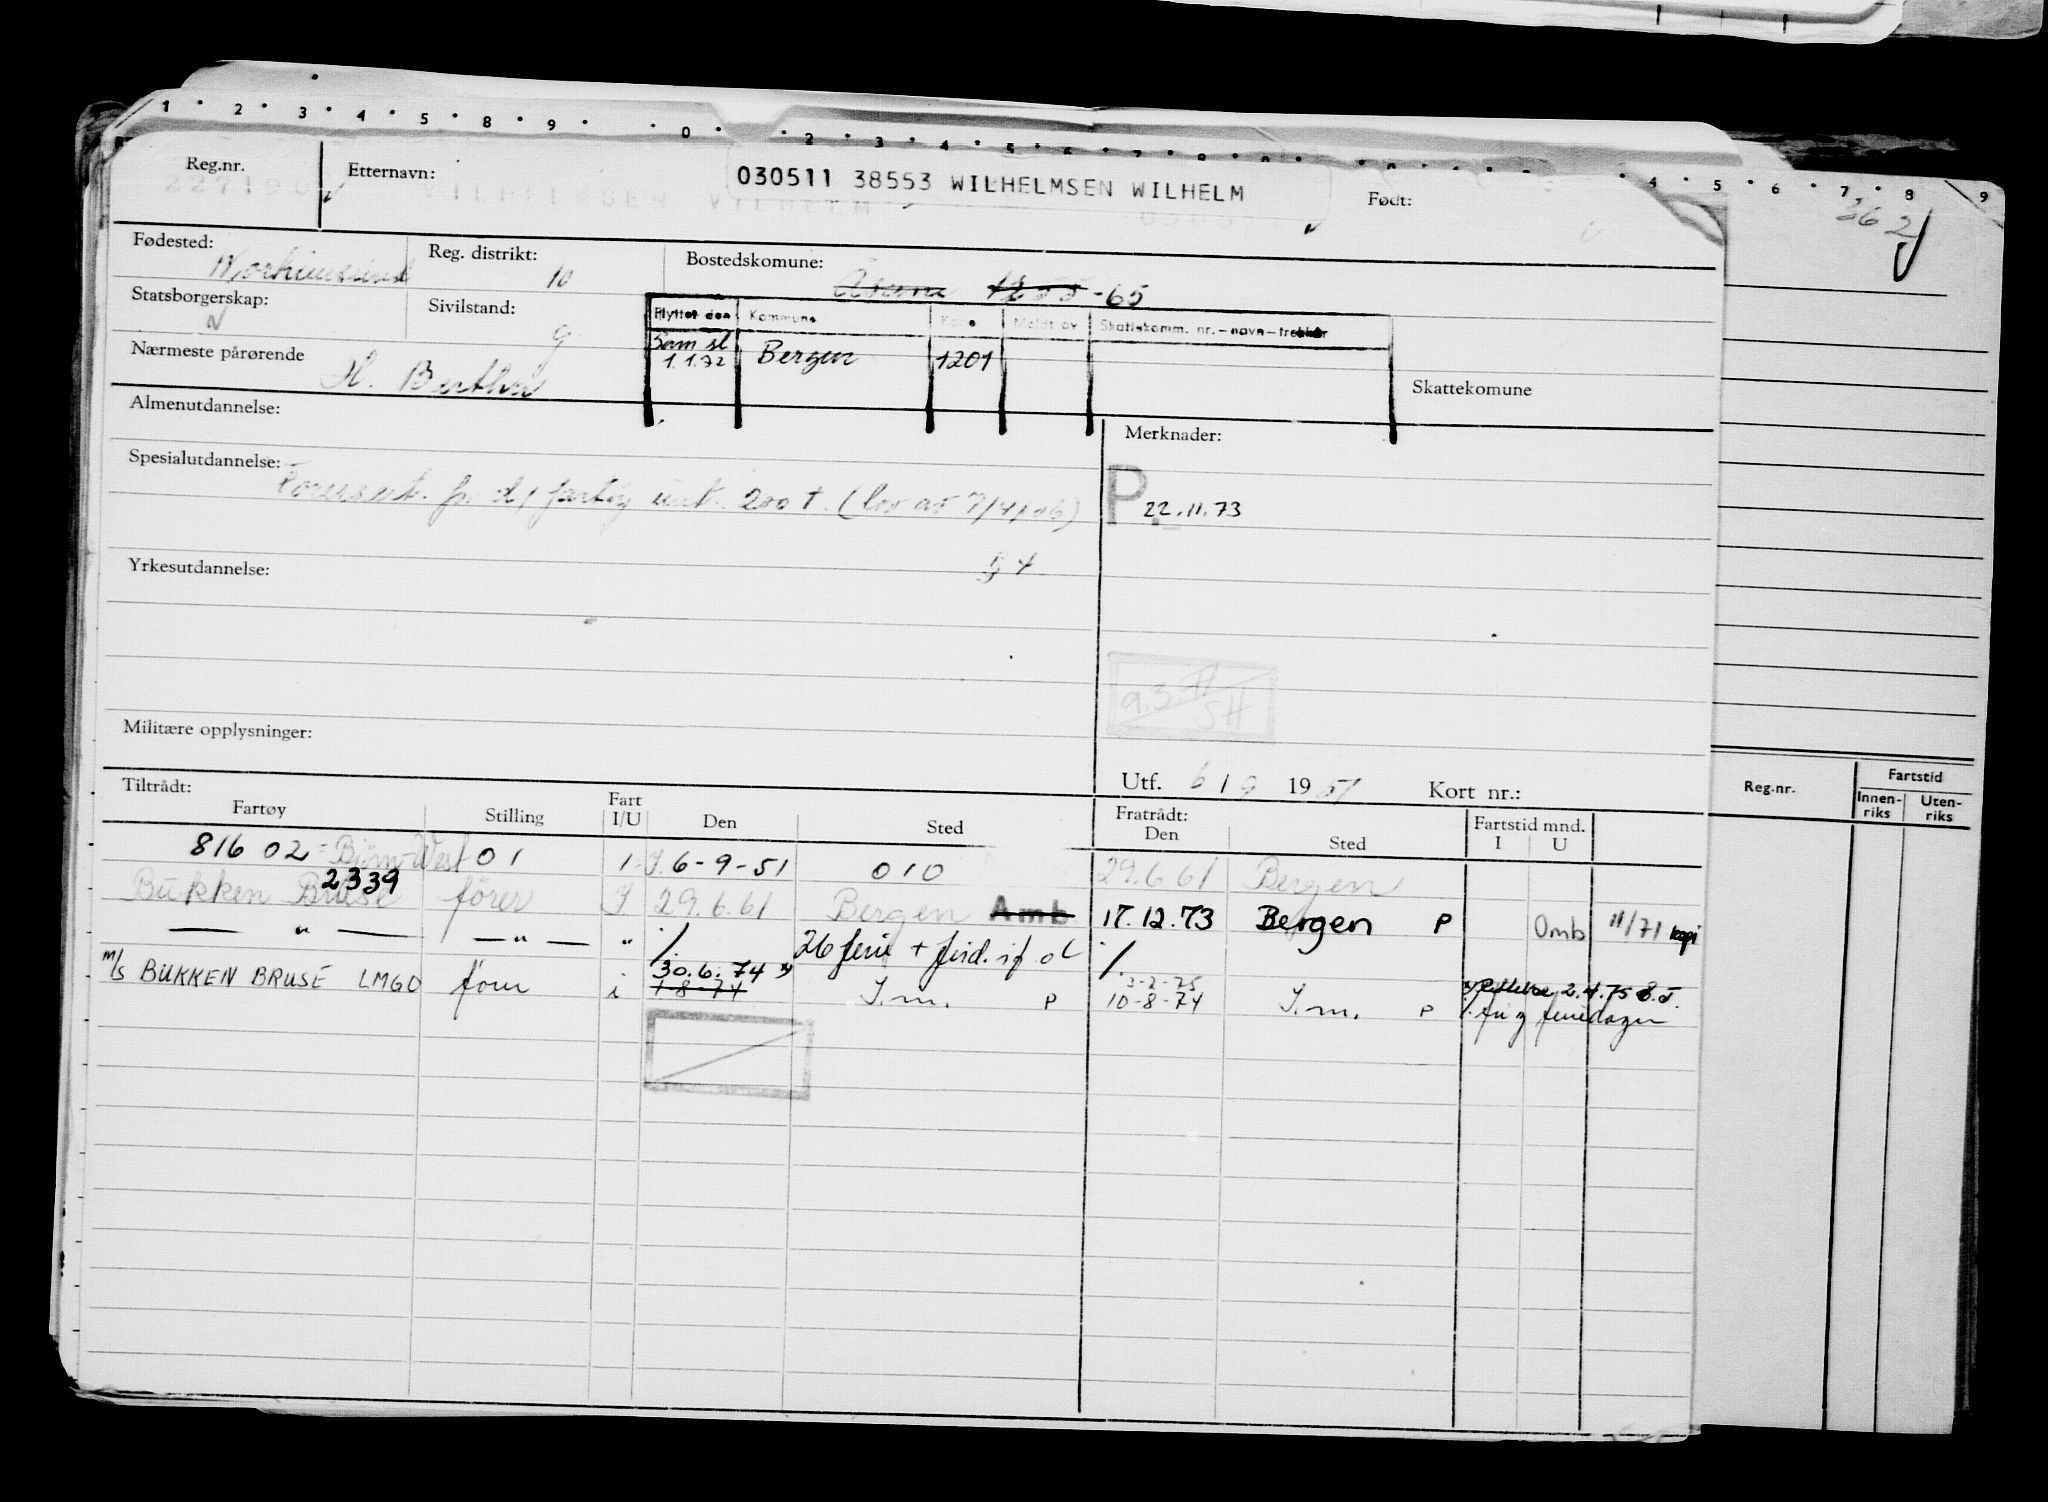 1 2 3 4 5 8 9 0 2 3 4 5 6 7 8 9
4 5 6 7 8 9
362
Reg.nr. Etternavn: 030511 38553 WILHELMSEN WILHELM Født:
Fødested: Norheimsund Reg. distrikt: 10 Bostedskomune: Åsane 1255 -65
Statsborgerskap: N Sivilstand: g
Flyttet den Kommune Kode Meldt av Skattekomm. nr.-navn-trekker
Sam sl 1.1.72 Bergen 1201
Nærmeste pårørende H. Berthe
Skattekomune
Almenutdannelse:
Merknader:
Spesialutdannelse:
200 t. (lov av
P 22.11.73
§ 4
Yrkesutdannelse:
Militære opplysninger:
Utf. 6 / 9 1951 Kort nr.:
Tiltrådt:
Fartøy Stilling Fart I/U Den Sted Fratrådt: Den Sted Fartstid mnd. I U
Reg.nr. Fartstid Innen-riks Uten-riks
816 02 = Bjørn-West 01 1 6-9-51 010 29.6.61 Bergen
Bukken Bruse 2339 fører I 29.6.61 Bergen Amb 17.12.73 Bergen P Omb 11/71 kopi
— " — — " — " ·/. 26 ferie + ·/.
M/S BUKKEN BRUSE LMGD fører i 30.6.74 1-8-74 I.m. P 3-2-75 10-8-74 I.m. P 2.4.75
feriedager